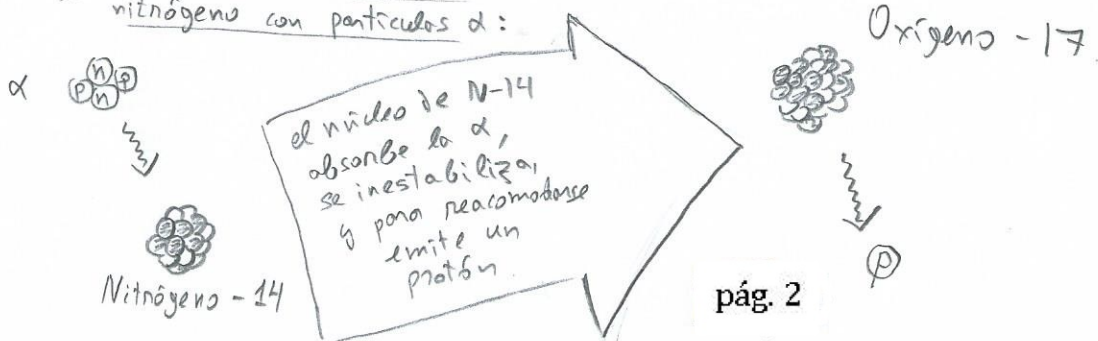 nitrógeno con partículas α:
α
p n p
n
Nitrógeno - 14
el núcleo de N-14
absorbe la α,
se inestabiliza,
y para reacomodarse
emite un
protón.
Oxígeno - 17
p
pág. 2